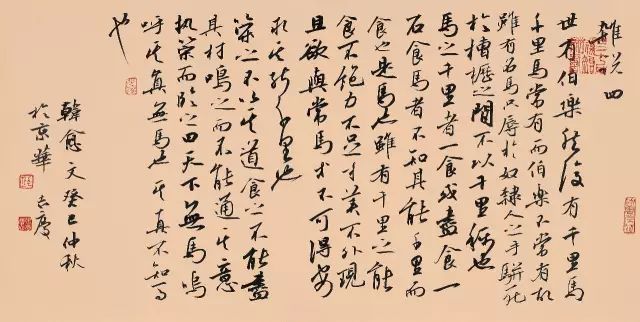 雜说四
世有伯樂然後有千里馬
千里馬常有而伯樂不常有故
雖有名馬只辱於奴隸人之手駢死
於槽櫪之間不以千里稱也
馬之千里者一食或盡食一
石食馬者不知其能千里而
食也是馬也雖有千里之能
食不飽力不足才美不外現
且欲與常馬等不可得安
求其能千里也
策之不以其道食之不能盡
其材鳴之而不能通其意
執策而臨之曰天下無馬嗚
呼其真無馬也其真不知馬
也
韓愈文癸巳仲秋
於京華